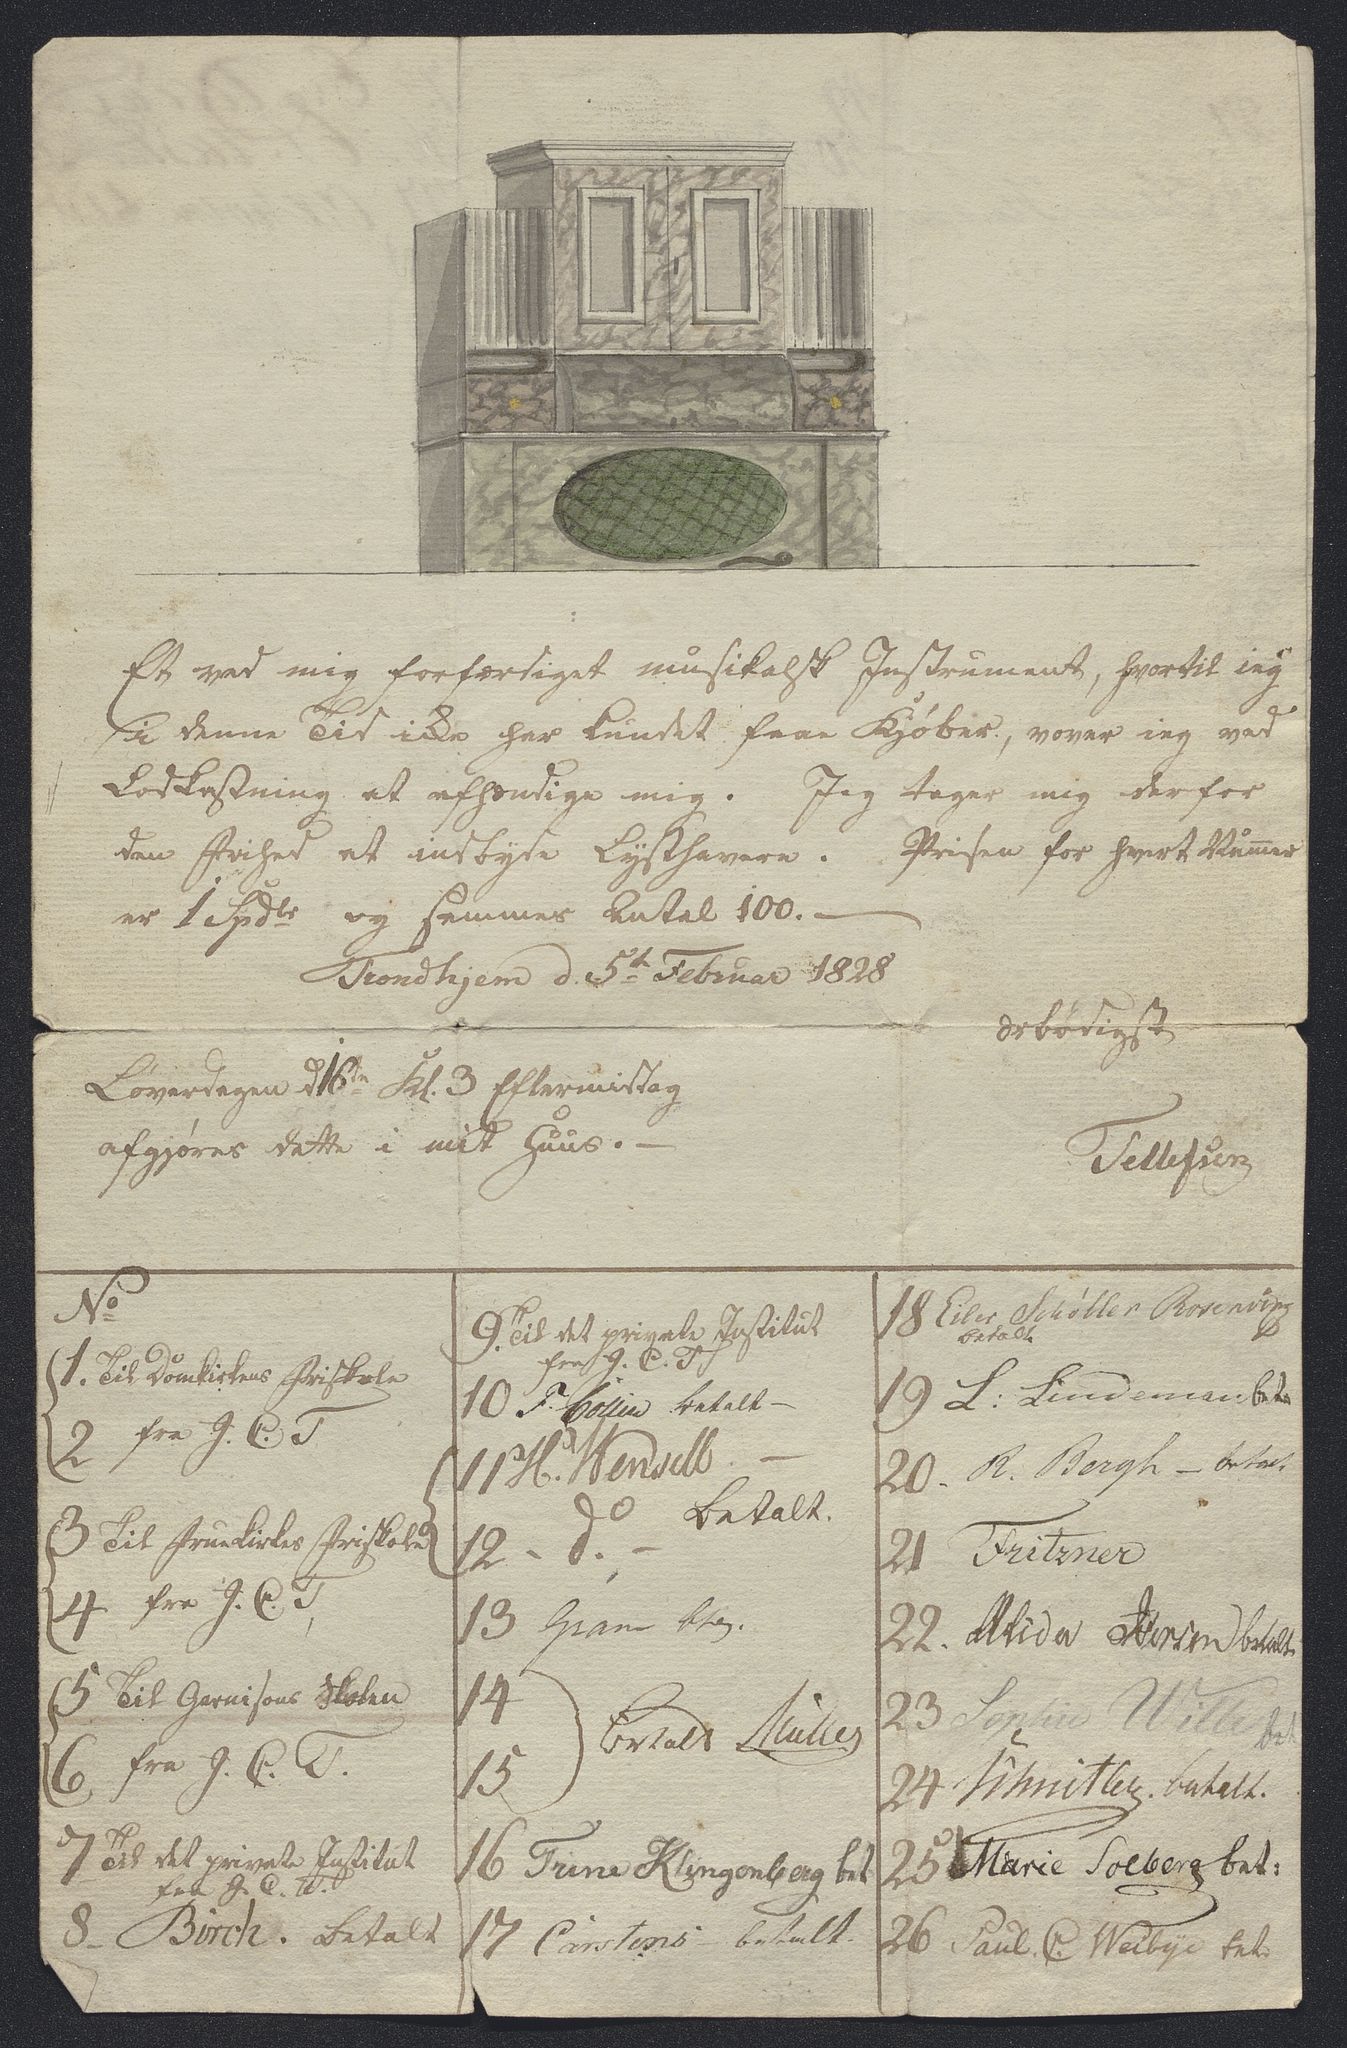 Et ved mig forfærdiget musikalsk Instrument, hvortil ieg
i denne Tid ikke har kundet faae Kjøber, vover ieg ved
Lodkastning at afhændige mig. Jeg tager mig derfor
den Frihed at indbyde Lysthavere. Prisen for hvert Numer
er 1 Spdlr og sammes Antal 100.
Trondhjem d. 5t Februar 1828
ærbødigst
Løverdagen d 16de Kl. 3 Eftermiddag
afgjøres dette i mit Huus.
Tellefsen
No
1. Til Domkirkens Friskole
2 fra J. C. T
3 Til Fruekirkes Friskole
4 fra J. C. T,
5 Til Garnisons Skolen
6 fra J. C. T.
7 Til det private Institut
fra J. C. T.
8 Birch. betalt
9. Til det private Institut
fra J. C. T
10 F. Collin betalt
11 H. Wensell
do betalt.
12 - d. -
13 Gram
14
betalt Müller
15
16 Trine Klingenberg bet
17 Carstens betalt.
18 Eiler Schøller Rosenving
betalt
19 L: Lindeman bet
20. R. Bergh - betalt
21 Fritzner
22. Alida betalt
23 Sophie Wille
bet
24 Schnitler. betalt.
25 Marie Solberg bet:
26 Paul. C. Weibye bet